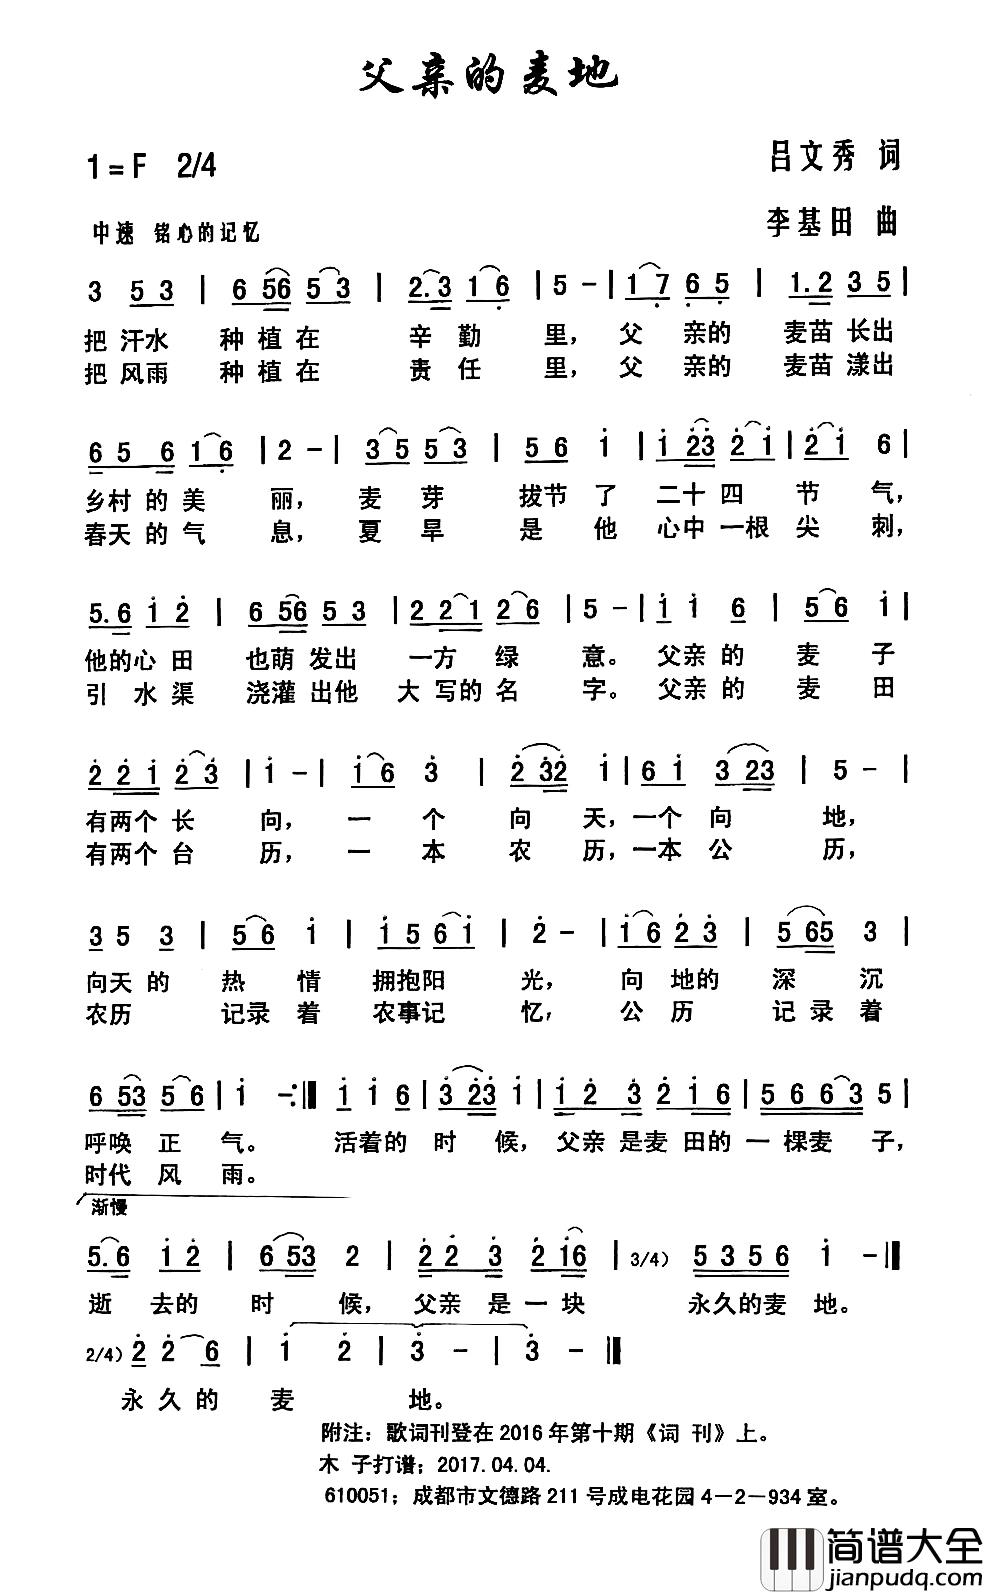 父亲的麦地
1=F 2/4
吕文秀 词
中速 铭心的记忆
李基田 曲
3 5 3 | 6 5 6 5 3 | 2. 3 1 6 | 5 - | 1 7 6 5 | 1. 2 3 5 |
把 汗水 种 植 在 辛 勤 里， 父 亲的 麦苗 长出
把 风雨 种 植 在 责 任 里， 父 亲的 麦苗 漾出
6 5 6 1 6 | 2 - | 3 5 5 3 | 5 6 i | i 2 3 2 i | 2 i 6 |
乡村 的 美 丽， 麦 芽 拔节 了 二十 四 节 气，
春天 的 气 息， 夏 旱 是 他 心中 一根 尖 刺，
5. 6 i 2 | 6 5 6 5 3 | 2 2 1 2 6 | 5 - | i i 6 | 5 6 i |
他的 心 田 也萌 发出 一方 绿 意。 父亲 的 麦 子
引 水 渠 浇灌 出他 大 写的 名 字。 父亲 的 麦 田
2 2 i 2 3 | i - | i 6 3 | 2 3 2 i | 6 i 3 2 3 | 5 - |
有两个 长 向， 一 个 向 天，一个 向 地，
有两个 台 历， 一 本 农 历，一本 公 历，
3 5 3 | 5 6 i | i 5 6 i | 2 - | i 6 2 3 | 5 6 5 3 |
向天 的 热 情 拥抱阳 光， 向 地的 深 沉
农历 记录 着 农事记 忆， 公 历 记 录 着
6 5 3 5 6 | i - :| i i 6 | 3 2 3 i | i 2 3 2 i 6 | 5 6 6 3 5 |
呼唤 正 气。 活着的 时 候， 父亲 是麦 田的 一 棵麦 子，
时代 风 雨。
渐慢
5. 6 i 2 | 6 5 3 2 | 2 2 3 2 i 6 | 3/4) 5 3 5 6 i - |
逝 去的 时 候， 父亲 是 一 块 永久的麦 地。
2/4) 2 2 6 | i 2 | 3 - | 3 - |
永 久 的 麦 地。
附注：歌词刊登在2016年第十期《词 刊》上。
木 子打谱；2017.04.04.
610051；成都市文德路211号成电花园4-2-934室。
简谱大全
jianpudq.com